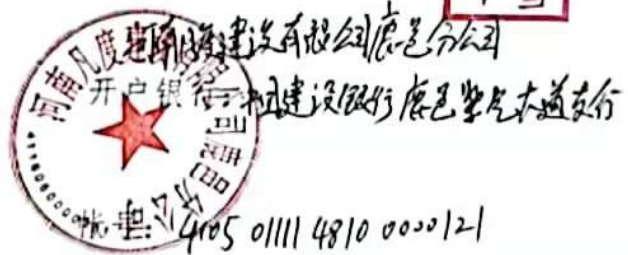 河南凡度建设有限公司鹿邑分公司
开户银行:中国建设银行鹿邑紫气大道支行
帐号: 4105 01111 4810 0000121